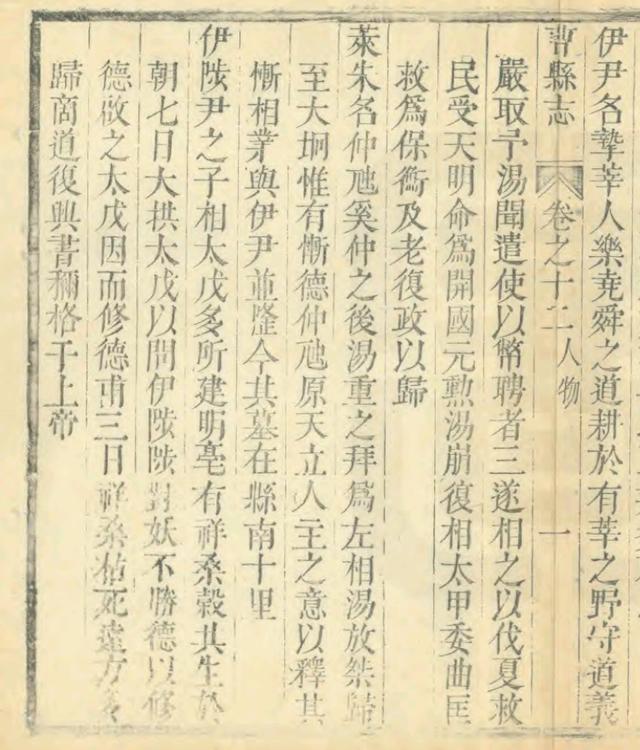 伊尹名摯莘人樂堯舜之道耕於有莘之野守道義
曹縣志 卷之十二 人物 一
嚴取予湯聞遣使以幣聘者三遂相之以伐夏救
民受天明命爲開國元勲湯崩復相太甲委曲匡
救爲保衡及老復政以歸
萊朱名仲虺奚仲之後湯重之拜爲左相湯放桀歸
至大坰惟有慚德仲虺原天立人主之意以釋其
慚相業與伊尹並隆今其墓在縣南十里
伊陟尹之子相太戊多所建明亳有祥桑榖共生於
朝七日大拱太戊以問伊陟陟對妖不勝德以修
德啟之太戊因而修德甫三日祥桑枯死遠方多
歸商道復興書稱格于上帝